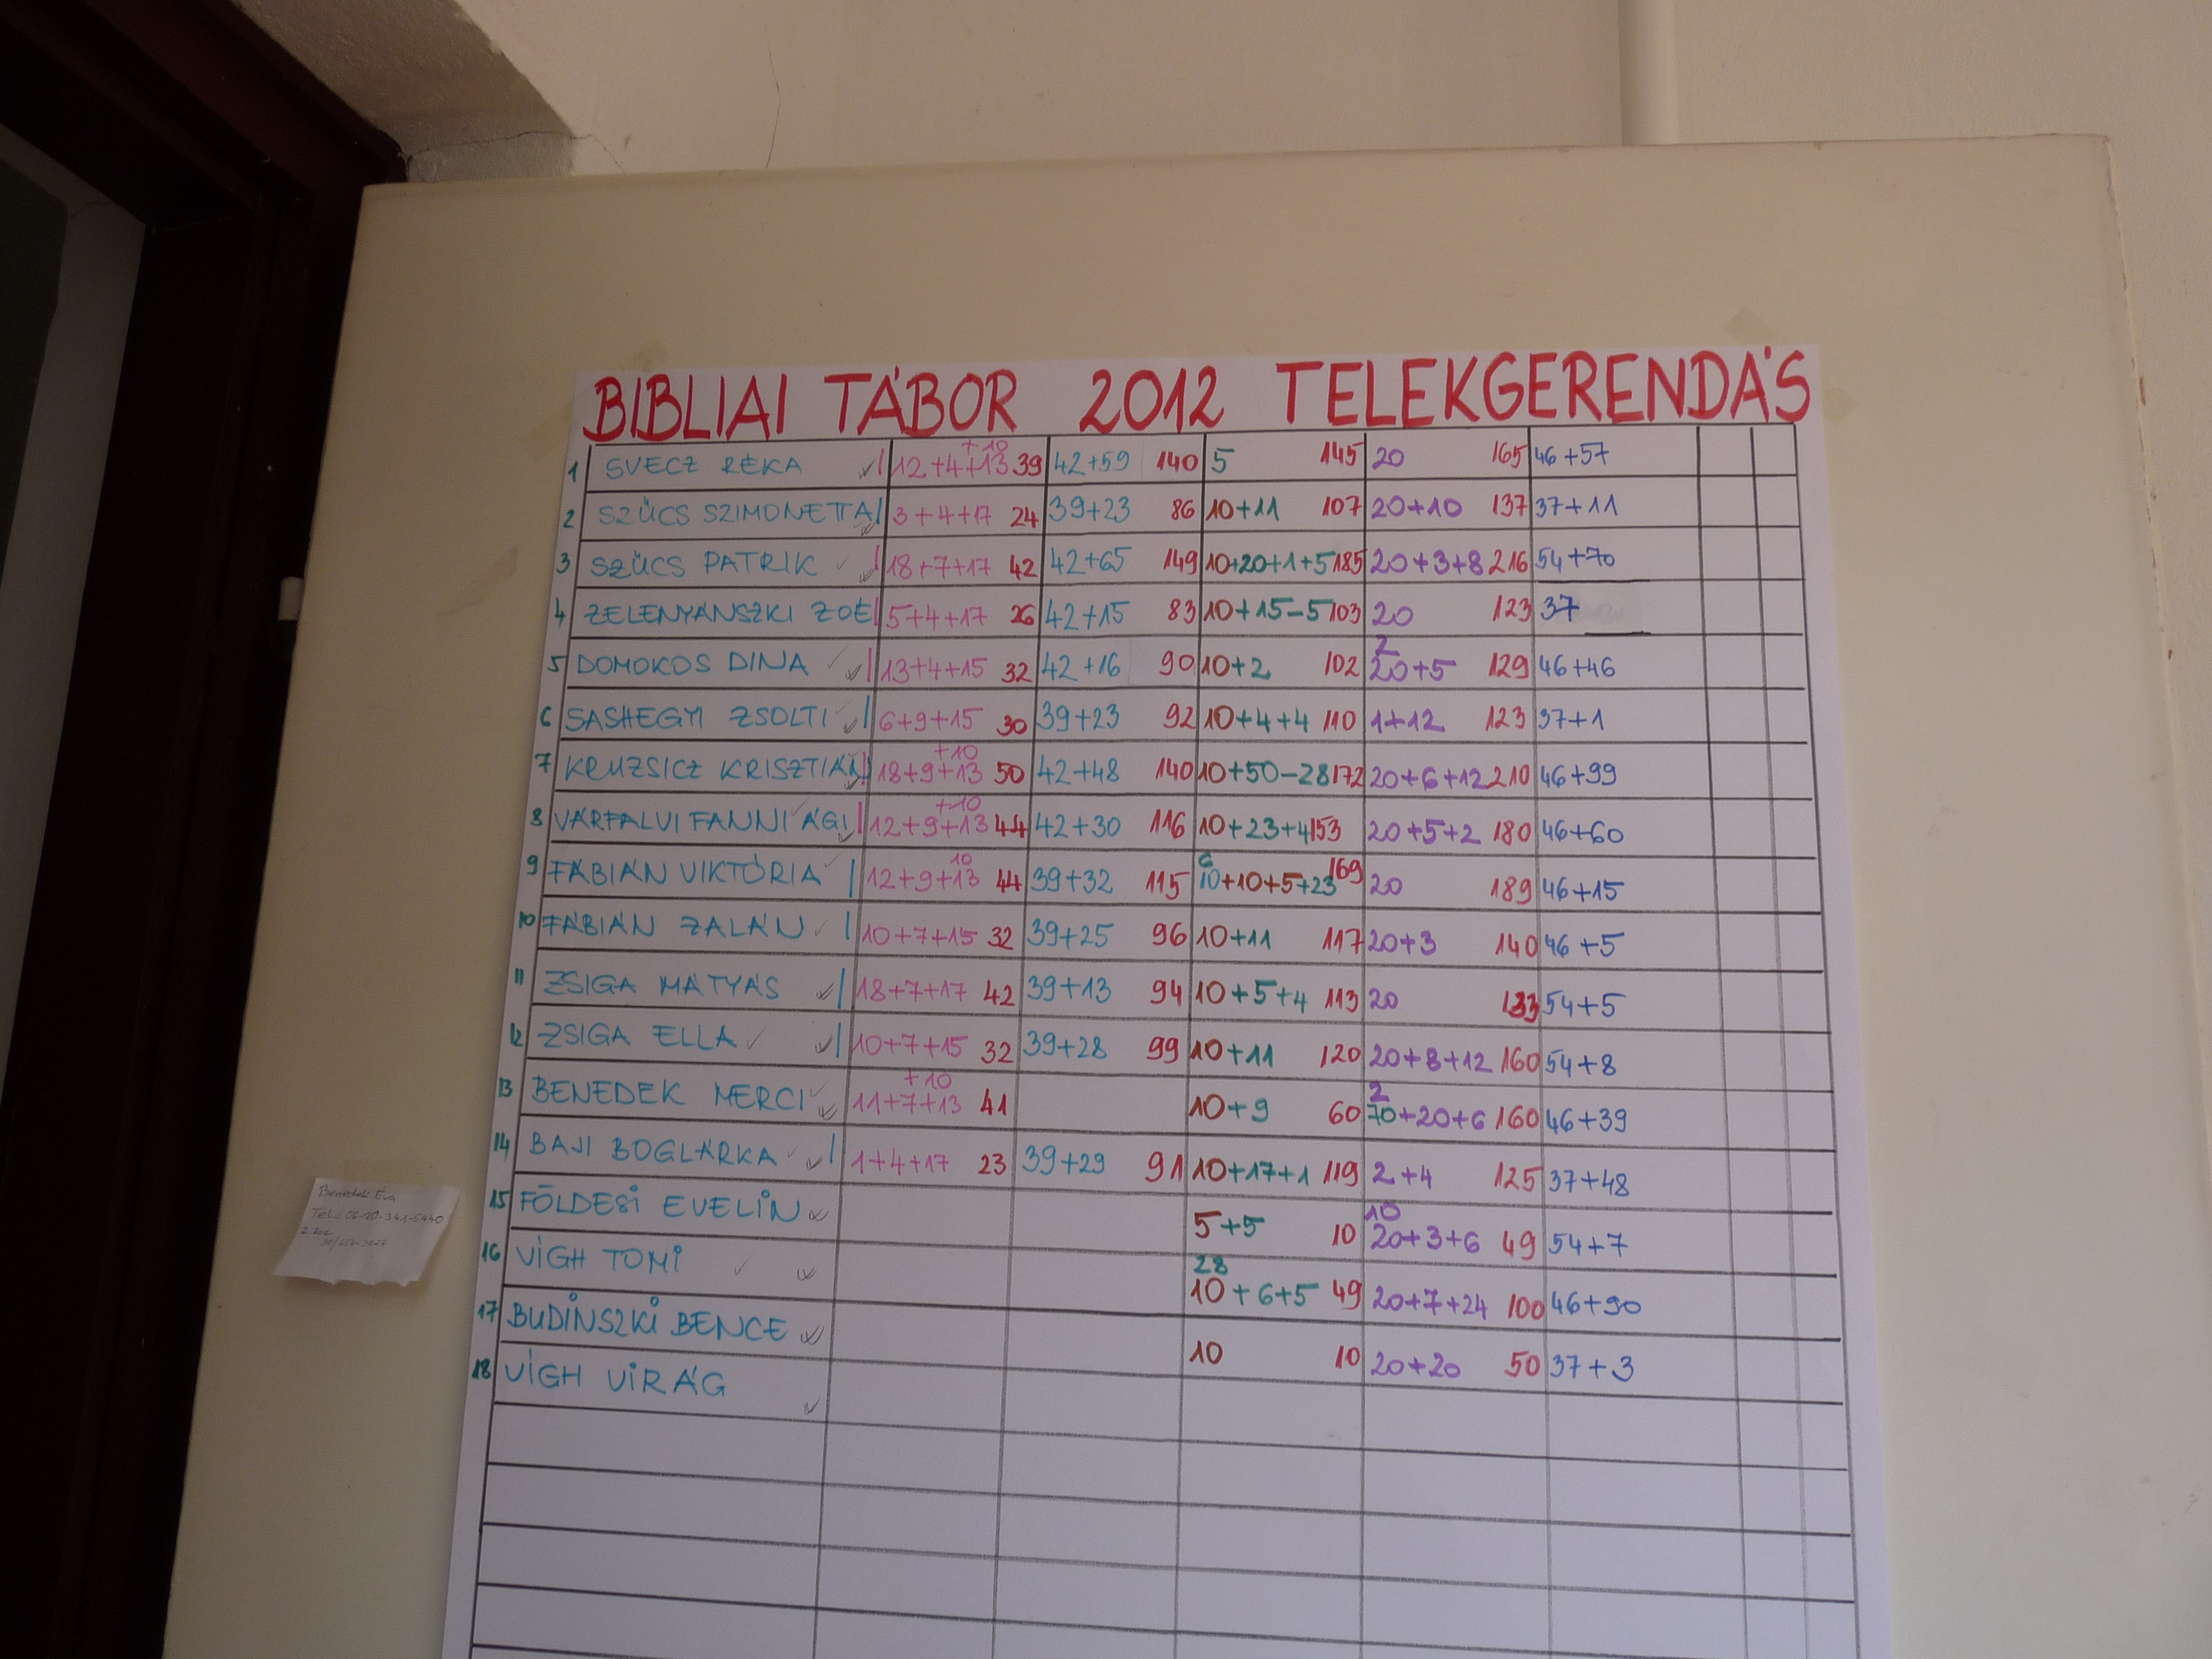 BIBLIAI TÁBOR 2012 TELEKGERENDÁS
1 SVECZ RÉKA 12+4+13 +10 39 42+59 140 5 145 20 165 46+57
2 SZŰCS SZIMONETTA 3+4+17 24 39+23 86 10+11 107 20+10 137 37+11
3 SZŰCS PATRIK 18+7+17 42 42+65 149 10+20+1+5 185 20+3+8 216 54+70
4 ZELENYÁNSZKI ZOÉ 5+4+17 26 42+15 83 10+15-5 103 20 123 37
5 DOMOKOS DINA 13+4+15 32 42+16 90 10+2 102 2 20+5 129 46+46
6 SASHEGYI ZSOLTI 6+9+15 30 39+23 92 10+4+4 110 1+12 123 37+1
7 KRUZSICZ KRISZTIÁN 18+9+13 +10 50 42+48 140 10+50-28 172 20+6+12 210 46+99
8 VÁRFALVI FANNI ÁGI 12+9+13 +10 44 42+30 116 10+23+4 153 20+5+2 180 46+60
9 FÁBIÁN VIKTÓRIA 12+9+13 10 44 39+32 115 6 10+10+5+23 169 20 189 46+15
10 FÁBIÁN ZALÁN 10+7+15 32 39+25 96 10+11 117 20+3 140 46+5
11 ZSIGA MÁTYÁS 18+7+17 42 39+13 94 10+5+4 113 20 133 54+5
12 ZSIGA ELLA 10+7+15 32 39+28 99 10+11 120 20+8+12 160 54+8
13 BENEDEK MERCI 11+7+13 +10 41 10+9 60 2 70+20+6 160 46+39
14 BAJI BOGLÁRKA 1+4+17 23 39+29 91 10+17+1 119 2+4 125 37+48
15 FÖLDESI EVELIN 5+5 10 10 20+3+6 49 54+7
16 VIGH TOMI 28 10+6+5 49 20+7+24 100 46+90
17 BUDINSZKI BENCE 10 10 20+20 50 37+3
18 VIGH VIRÁG
Benedek Éva
Tel.: 06-20-341-5440